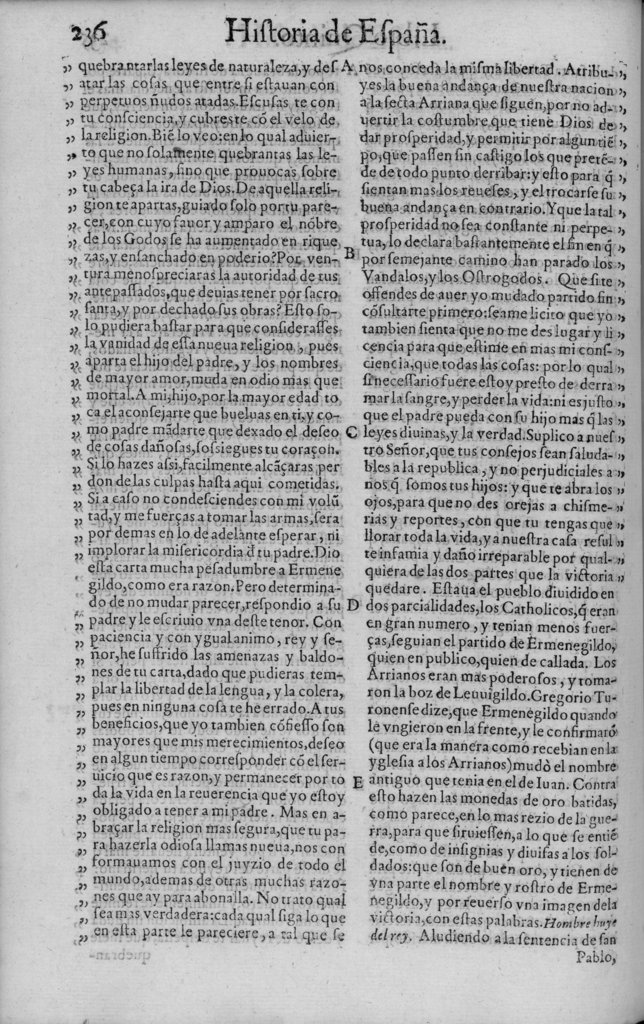 236 Historia de España.
„ quebrantarlas leyes de naturaleza, y des
„ atar las cosas que entre si estauan con
„ perpetuos ñudos atadas. Escusas te con
„ tu consciencia, y cubreste cõ el velo de
„ la religion. Biẽ lo veo: en lo qual aduier-
„ to que no solamente quebrantas las le-
„ yes humanas, sino que prouocas sobre
„ tu cabeça la ira de Dios. De aquella reli-
„ gion te apartas, guiado solo por tu pare-
„ cer, con cuyo fauor y amparo el nõbre
„ de los Godos se ha aumentado en rique
„ zas, y ensanchado en poderio? Por ven-
„ tura menospreciaras la autoridad de tus
„ antepassados, que deuias tener por sacro
„ santa, y por dechado sus obras? Esto so-
„ lo pudiera bastar para que considerasses
„ la vanidad de essa nueua religion, pues
„ aparta el hijo del padre, y los nombres
„ de mayor amor, muda en odio mas que
„ mortal. A mi, hijo, por la mayor edad to
„ ca el aconsejarte que bueluas en ti, y co-
„ mo padre mãdarte que dexado el deseo
„ de cosas dañosas, sossiegues tu coraçon.
„ Si lo hazes assi, facilmente alcãçaras per
„ don de las culpas hasta aqui cometidas.
„ Si a caso no condesciendes con mi volũ
„ tad, y me fuerças a tomar las armas, sera
„ por demas en lo de adelante esperar, ni
„ implorar la misericordia d̃ tu padre. Dio
esta carta mucha pesadumbre a Ermene
gildo, como era razon. Pero determina-
do de no mudar parecer, respondio a su
„ padre y le escriuio vna deste tenor. Con
„ paciencia y con ygual animo, rey y se-
„ ñor, he suffrido las amenazas y baldo-
„ nes de tu carta, dado que pudieras tem-
„ plar la libertad de la lengua, y la colera,
„ pues en ninguna cosa te he errado. A tus
„ beneficios, que yo tambien cõfiesso son
„ mayores que mis merecimientos, deseo
„ en algun tiempo corresponder cõ el ser-
„ uicio que es razon, y permanecer por to
„ da la vida en la reuerencia que yo estoy
„ obligado a tener a mi padre. Mas en a-
„ braçar la religion mas segura, que tu pa-
„ ra hazerla odiosa llamas nueua, nos con
„ formauamos con el juyzio de todo el
„ mundo, ademas de otras muchas razo-
„ nes que ay para abonalla. No trato qual
„ sea mas verdadera: cada qual siga lo que
„ en esta parte le pareciere, a tal que se
A nos conceda la misma libertad. Atribu- „
yes la buena andança de nuestra nacion „
a la secta Arriana que siguen, por no ad- „
uertir la costumbre que tiene Dios de „
dar prosperidad, y permitir por algun tiẽ „
po, que passen sin castigo los que pretẽ- „
de de todo punto derribar: y esto para q̃ „
sientan mas los reueses, y el trocarse su „
buena andança en contrario. Y que la tal „
prosperidad no sea constante ni perpe- „
B tua, lo declara bastantemente el fin en q̃ „
por semejante camino han parado los „
Vandalos, y los Ostrogodos. Que si te „
offendes de auer yo mudado partido sin „
cõsultarte primero: seame licito que yo „
tambien sienta que no me des lugar y li „
cencia para que estime en mas mi cons- „
ciencia, que todas las cosas: por lo qual „
si necessario fuere estoy presto de derra „
mar la sangre, y perder la vida: ni es justo „
que el padre pueda con su hijo mas q̃ las „
C leyes diuinas, y la verdad. Suplico a nues „
tro Señor, que tus consejos sean saluda- „
bles a la republica, y no perjudiciales a „
nos q̃ somos tus hijos: y que te abra los „
ojos, para que no des orejas a chisme- „
rias y reportes, con que tu tengas que „
llorar toda la vida, y a nuestra casa resul „
te infamia y daño irreparable por qual- „
quiera de las dos partes que la victoria „
quedare. Estaua el pueblo diuidido en
D dos parcialidades, los Catholicos, q̃ eran
en gran numero, y tenian menos fuer-
ças, seguian el partido de Ermenegildo,
quien en publico, quien de callada. Los
Arrianos eran mas poderosos, y toma-
ron la boz de Leuuigildo. Gregorio Tu-
ronense dize, que Ermenegildo quando
le vngieron en la frente, y le confirmarõ
(que era la manera como recebian en la
yglesia a los Arrianos) mudò el nombre
E antiguo que tenia en el de Iuan. Contra
esto hazen las monedas de oro batidas,
como parece, en lo mas rezio de la gue-
rra, para que siruiessen, a lo que se entiẽ
de, como de insignias y diuisas a los sol-
dados: que son de buen oro, y tienen de
vna parte el nombre y rostro de Erme-
negildo, y por reuerso vna imagen de la
victoria, con estas palabras. Hombre huye
del rey. Aludiendo a la sentencia de san
Pablo,